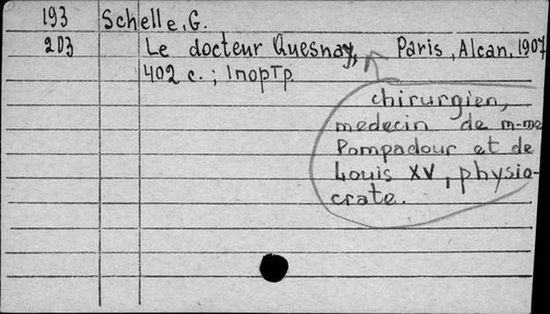 193 Schelle, G.
203 Le docteur Quesnay, Paris, Alcan, 1907
402 с.; 1 портр.
chirurgien,
medecin de m-me
Pompadour et de
Louis XV, physio-
crate.